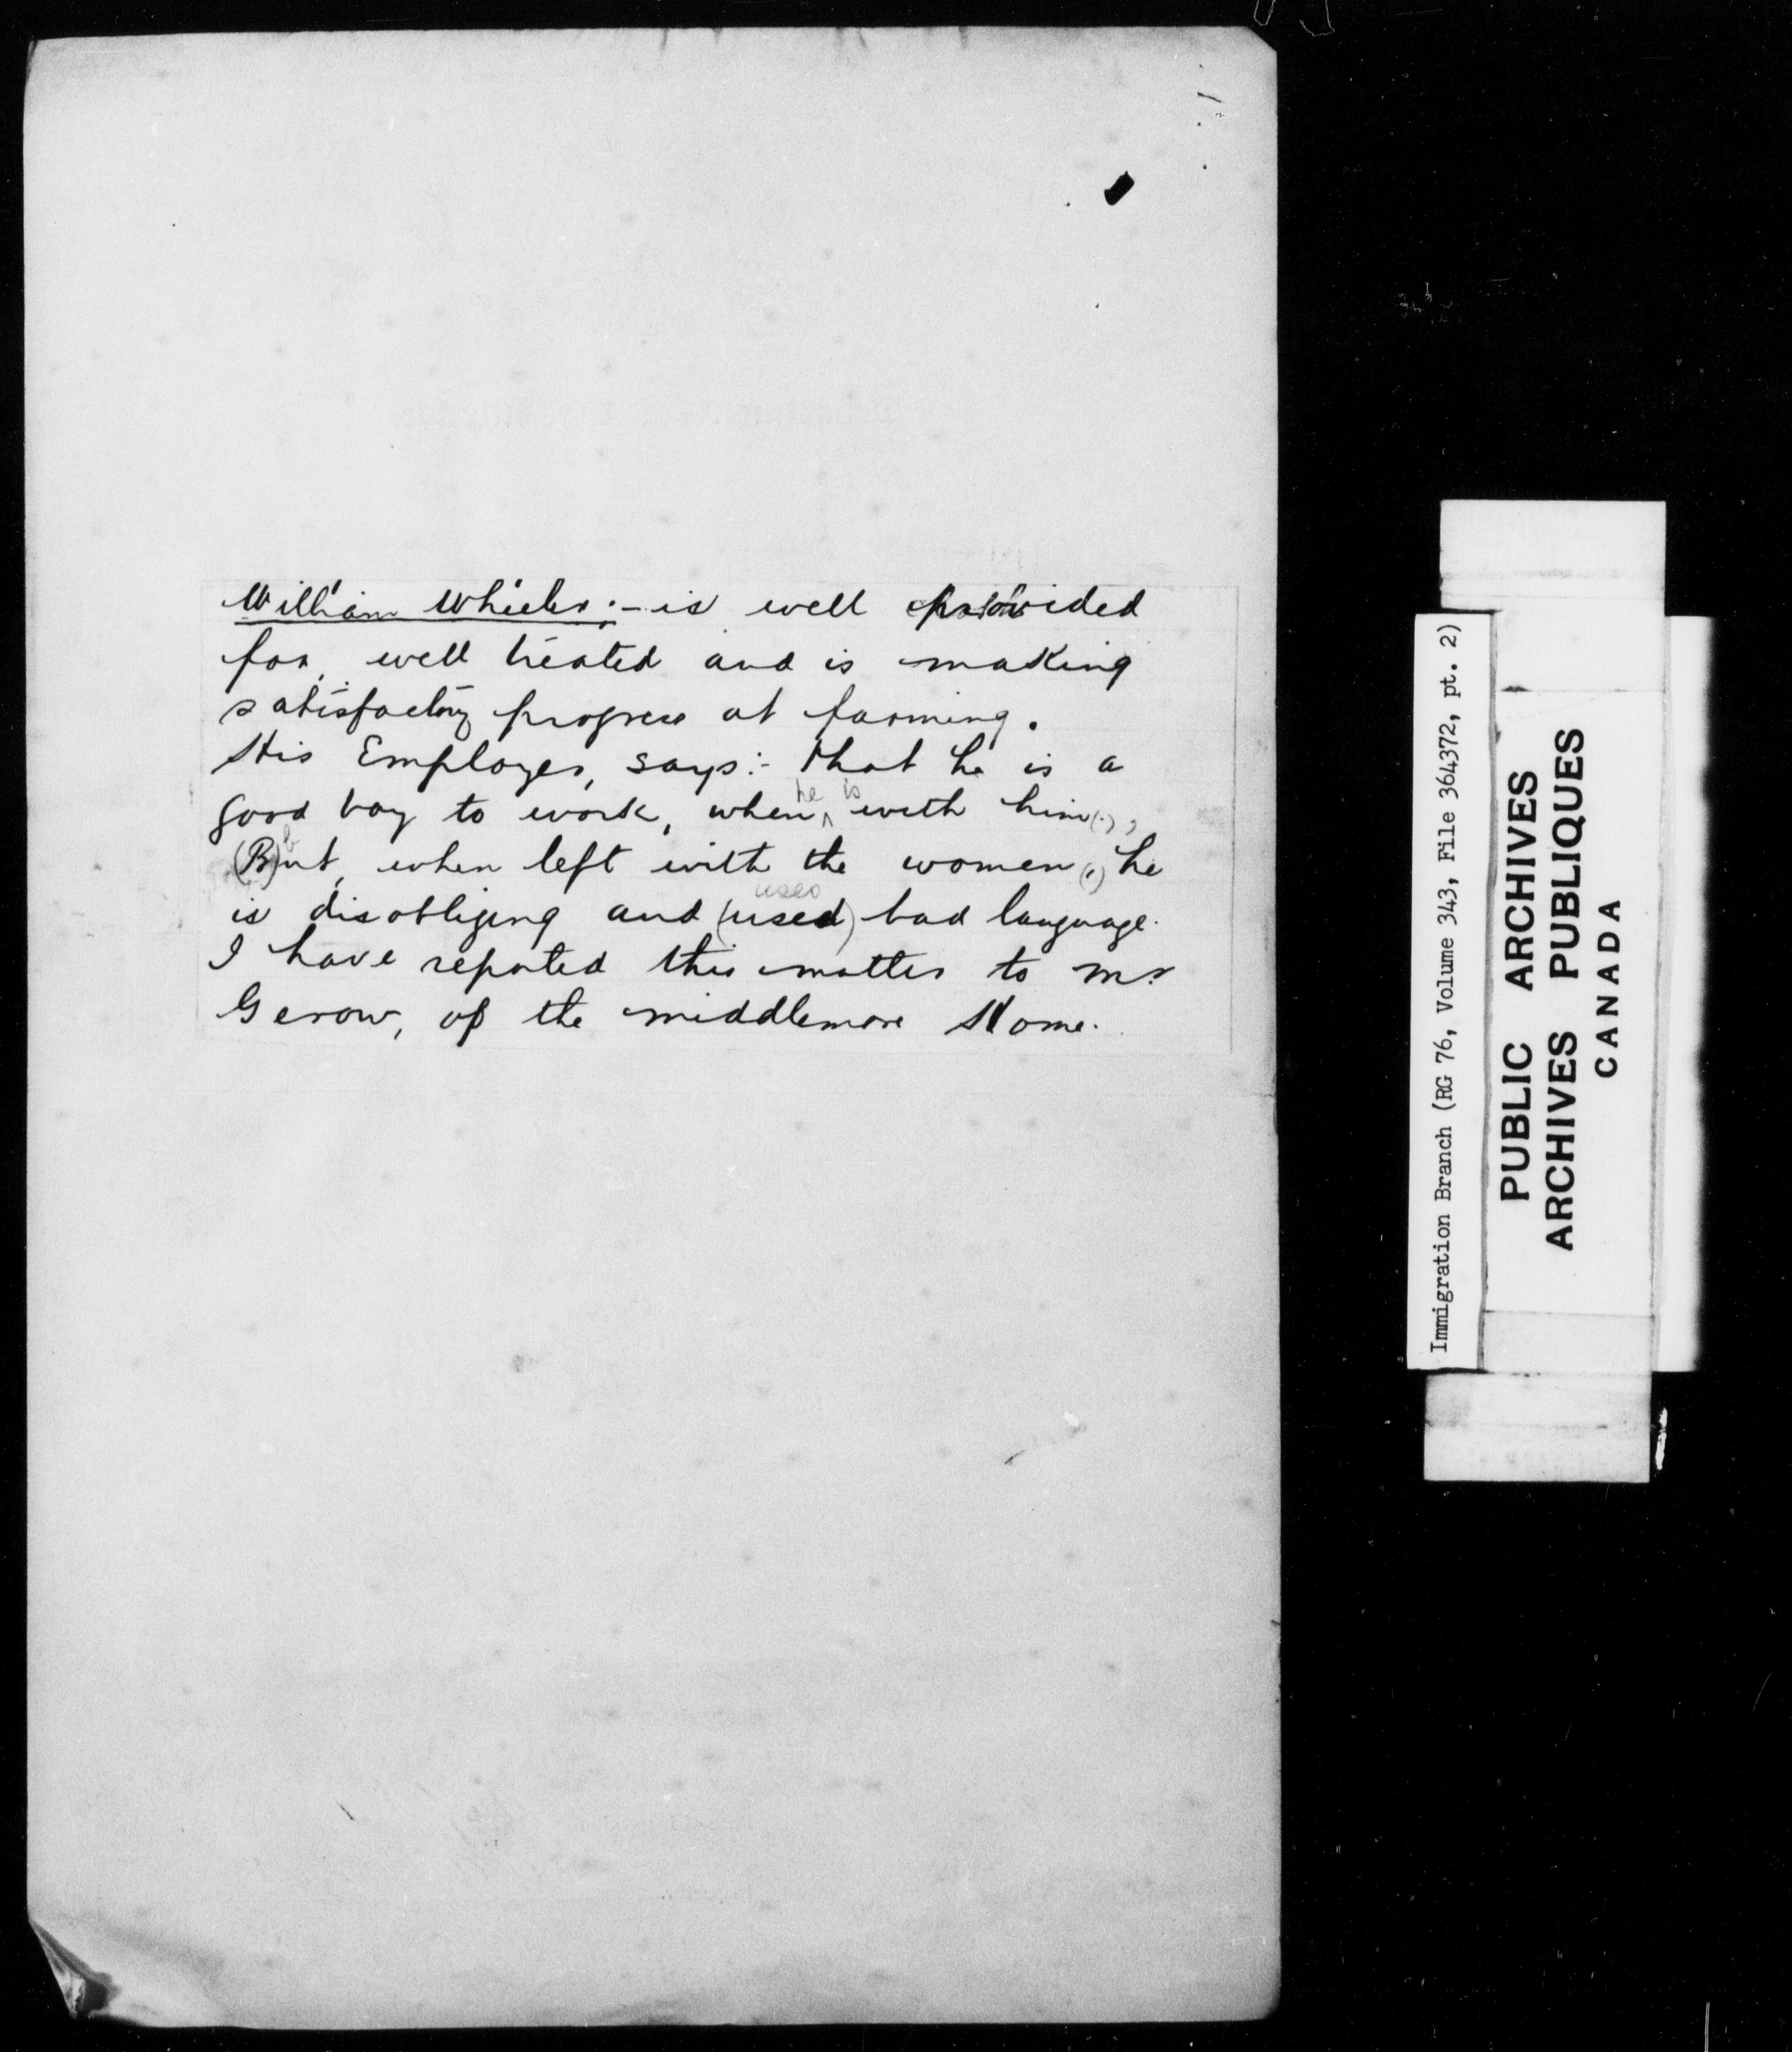 William Wheeler:- is well provided
for, well treated and is making
satisfactory progress at farming.
His Employer, says:- that he is a
he is
good boy to work, when ^ with him(.),
(B)but, when left with the women(,) he
uses
is disobliging and (used) bad language.
I have reported this matter to Mr
Gerow, of the Middlemore Home.
Immigration Branch (RG 76, Volume 343, File 364372, pt. 2)
PUBLIC ARCHIVES
ARCHIVES PUBLIQUES
CANADA